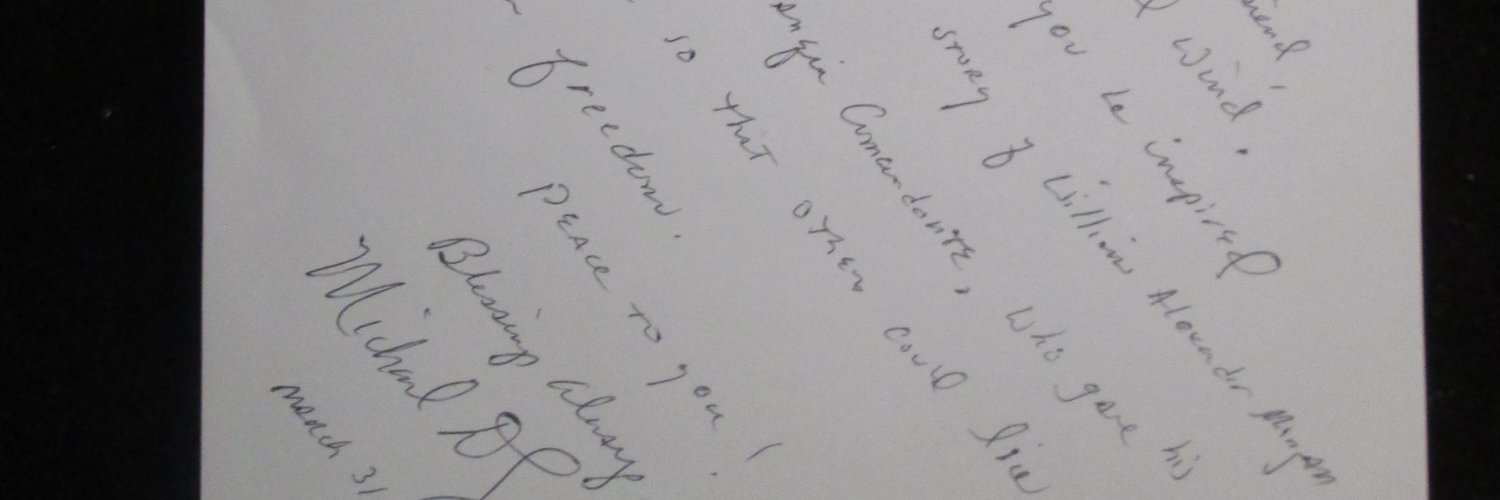 friend
Wind".
you be inspired
story of William Alexander Morgan
Comandante, who gave his
so that others could live
freedom.
Peace to you!
Blessing always
Michael D
March 31